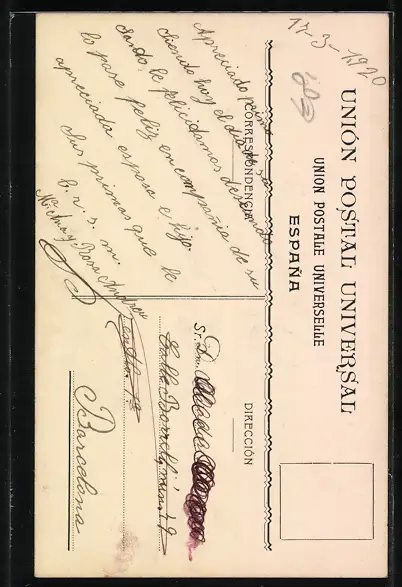 17-3-1920
UNIÓN POSTAL UNIVERSAL
UNION POSTALE UNIVERSELLE
ESPAÑA
CORRESPONDENCIA
Apreciado primo
siendo hoy el día de su
santo le felicitamos deseando
lo pase feliz en compañía de su
apreciada esposa e hijo.
Sus primas que le
b. s. m.
y Rosa
DIRECCIÓN
Sr. Dn.
Calle Borrell
Barcelona